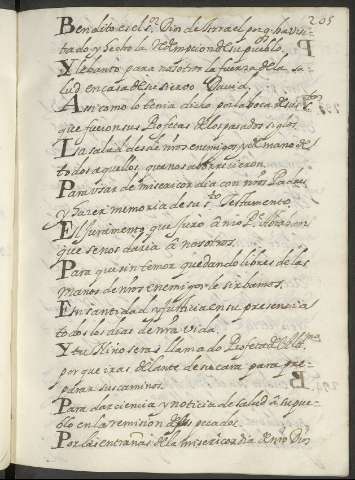 205
Bendito es el s.r Dios de Israel porq ha vis-
tado y hecho la Redempcion de su pueblo.
Y lebanto para nosotros la fuerza de la sa-
lud en casa de su siervo David.
Asi como lo tenia dicho por la boca de sus s.tos
que fueron sus Profetas de los pasados siglos.
La salud desde nros enemigos y de la mano de
todos aquellos que nos aborrecieron.
Para usar de misericordia con nros Padres
y hazer memoria de su s.to Testamento.
El Juramento que juro â nro P.e Abraham
que se nos daria â nosotros.
Para que sin temor quedando libres de las
manos de nros enemigos le sirbamos.
En santidad y justicia en su presencia
todos los dias de nra vida.
Y tu Niño seras llamado Profeta de el Alt.mo
porque iras delante de su cara para pre-
parar sus caminos.
Para dar ciencia y noticia de salud â su pue-
blo en la remision de sus pecados.
Por las entrañas de la misericordia de nro Dios